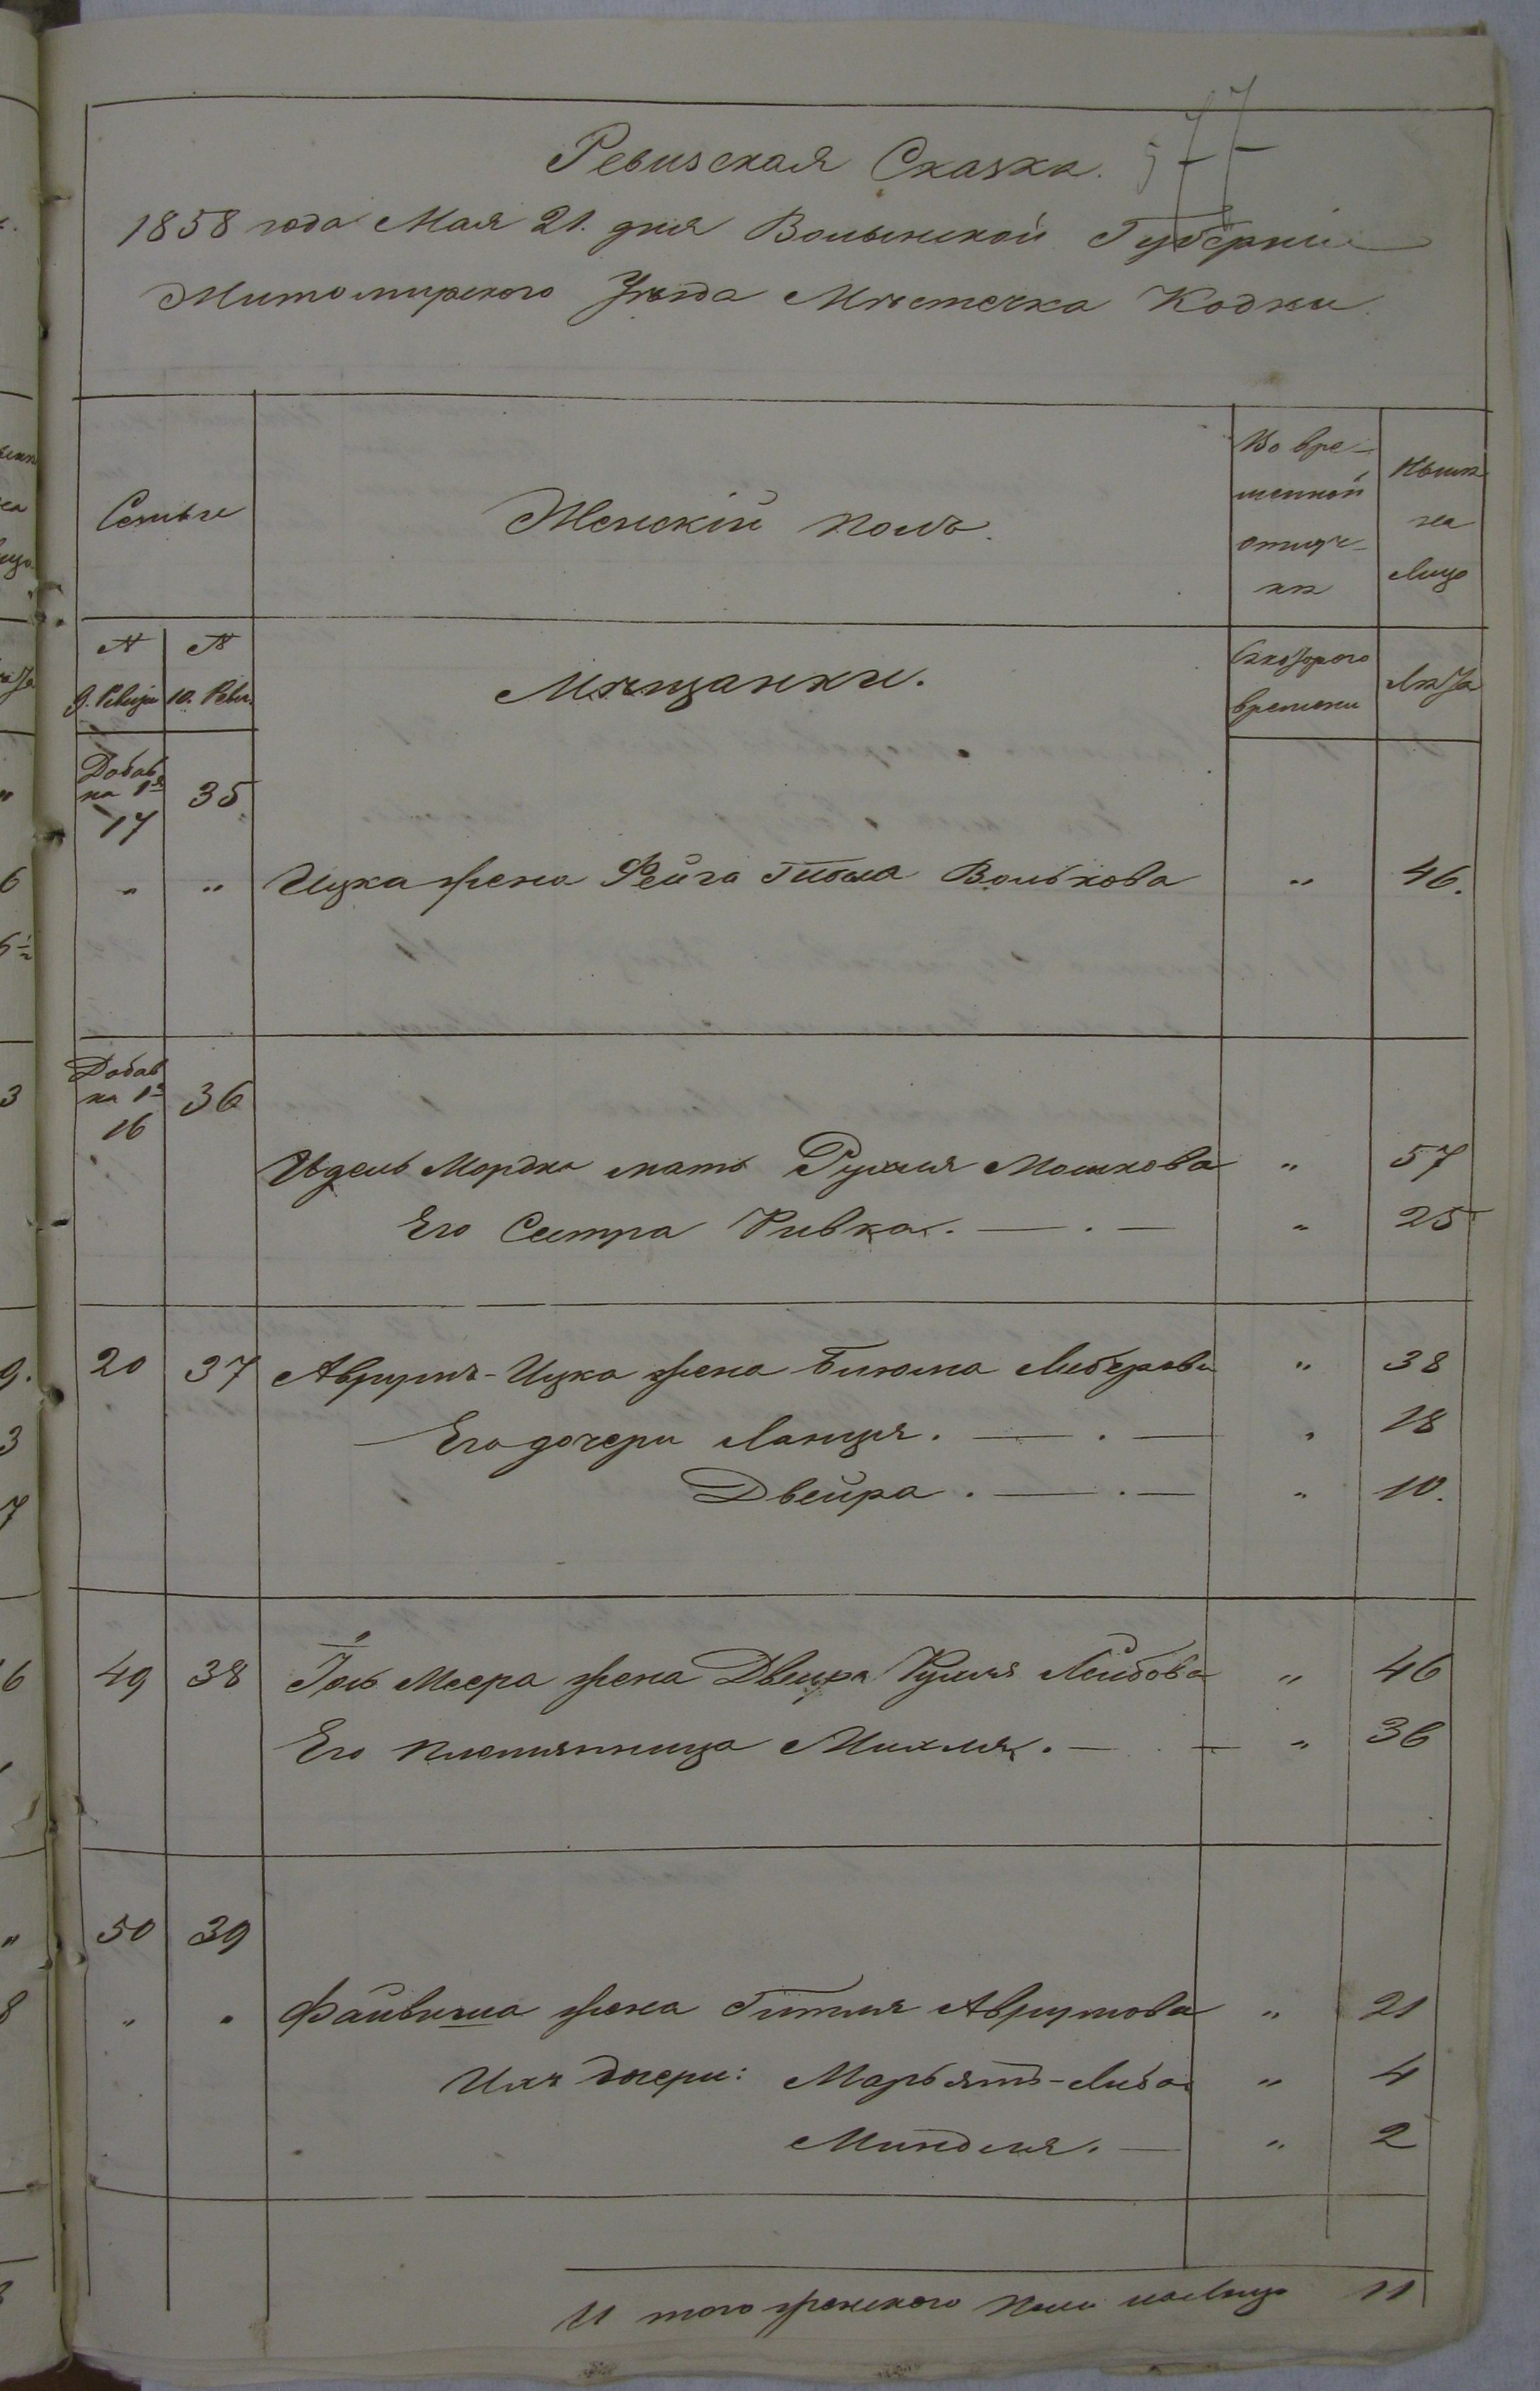 577
Ревизская Сказка.
1858 года Мая 21. дня Волынской Губерніи
Житомирского Уѣзда Мѣстечка Кодни
Семьи
Женскій полъ.
Во вре-
менной
отлуч-
кѣ
Нынѣ
на
лицо
№
9. Ревизіи
№
10. Реви.
Мѣщанки.
Съ котораго
времени
Лѣта
Добав
на 1й
17
35
" " Ицка жена Фейга Вольkова " 46.
Добав
на 1й
16
36
Юдель Мордка мать Рухля Мошкова " 57
Его Сестра Ривка. — . — " 25
20 37 Аврумъ-Ицка жена Либерова " 38
Его дочери . — . — " 18
Двейра . — . — " 10.
49 38 Меера жена Двейра Лейбова " 46
Его племянница Михля. — . — " 36
50 39
" " Файвиша жена Гитля Аврумова " 21
Ихъ дочери: Марьямъ-Либа " 4
Миндля. — " 2
И того женского пола на лицо 11